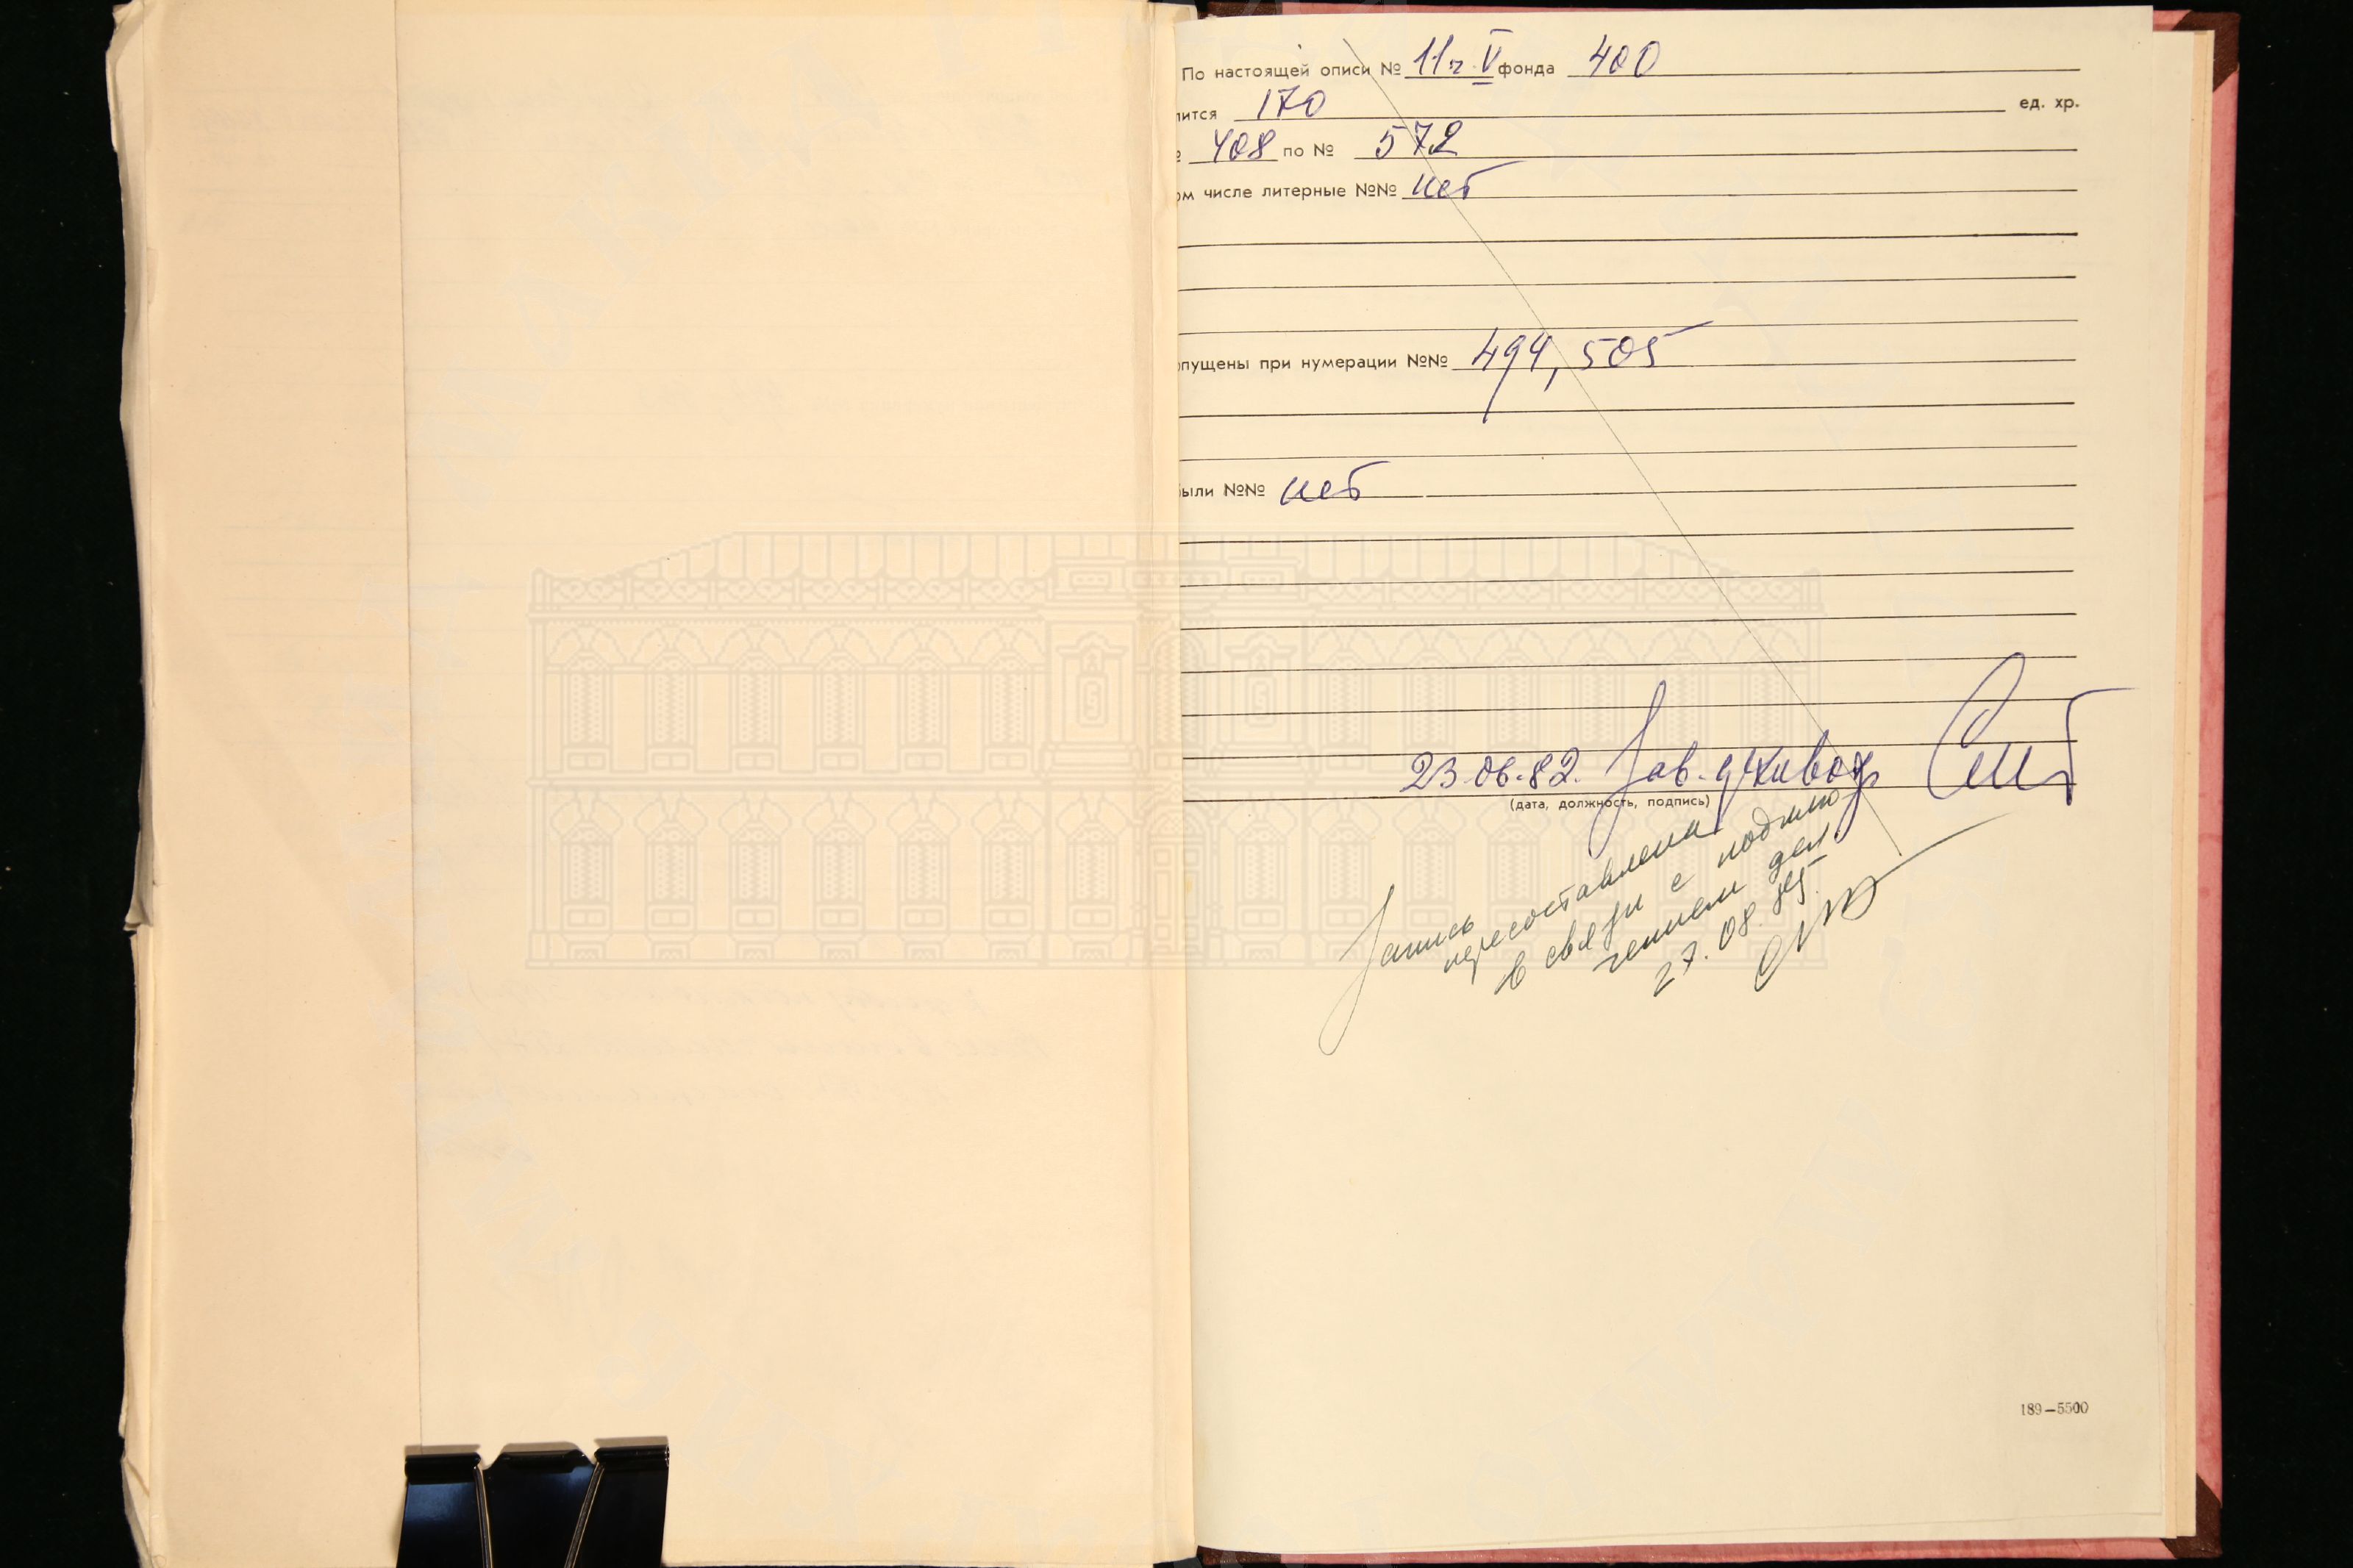 По настоящей описи № 11 ч. V фонда 400
ится 170 ед. хр.
408 по № 572
ом числе литерные №№ нет
опущены при нумерации №№ 494, 505
были №№ нет
23.06.82. Зав. архивохр
(дата, должность, подпись)
Запись
пересоставлена
в связи с подклю
чением дел.
27.08.85.
189—5500